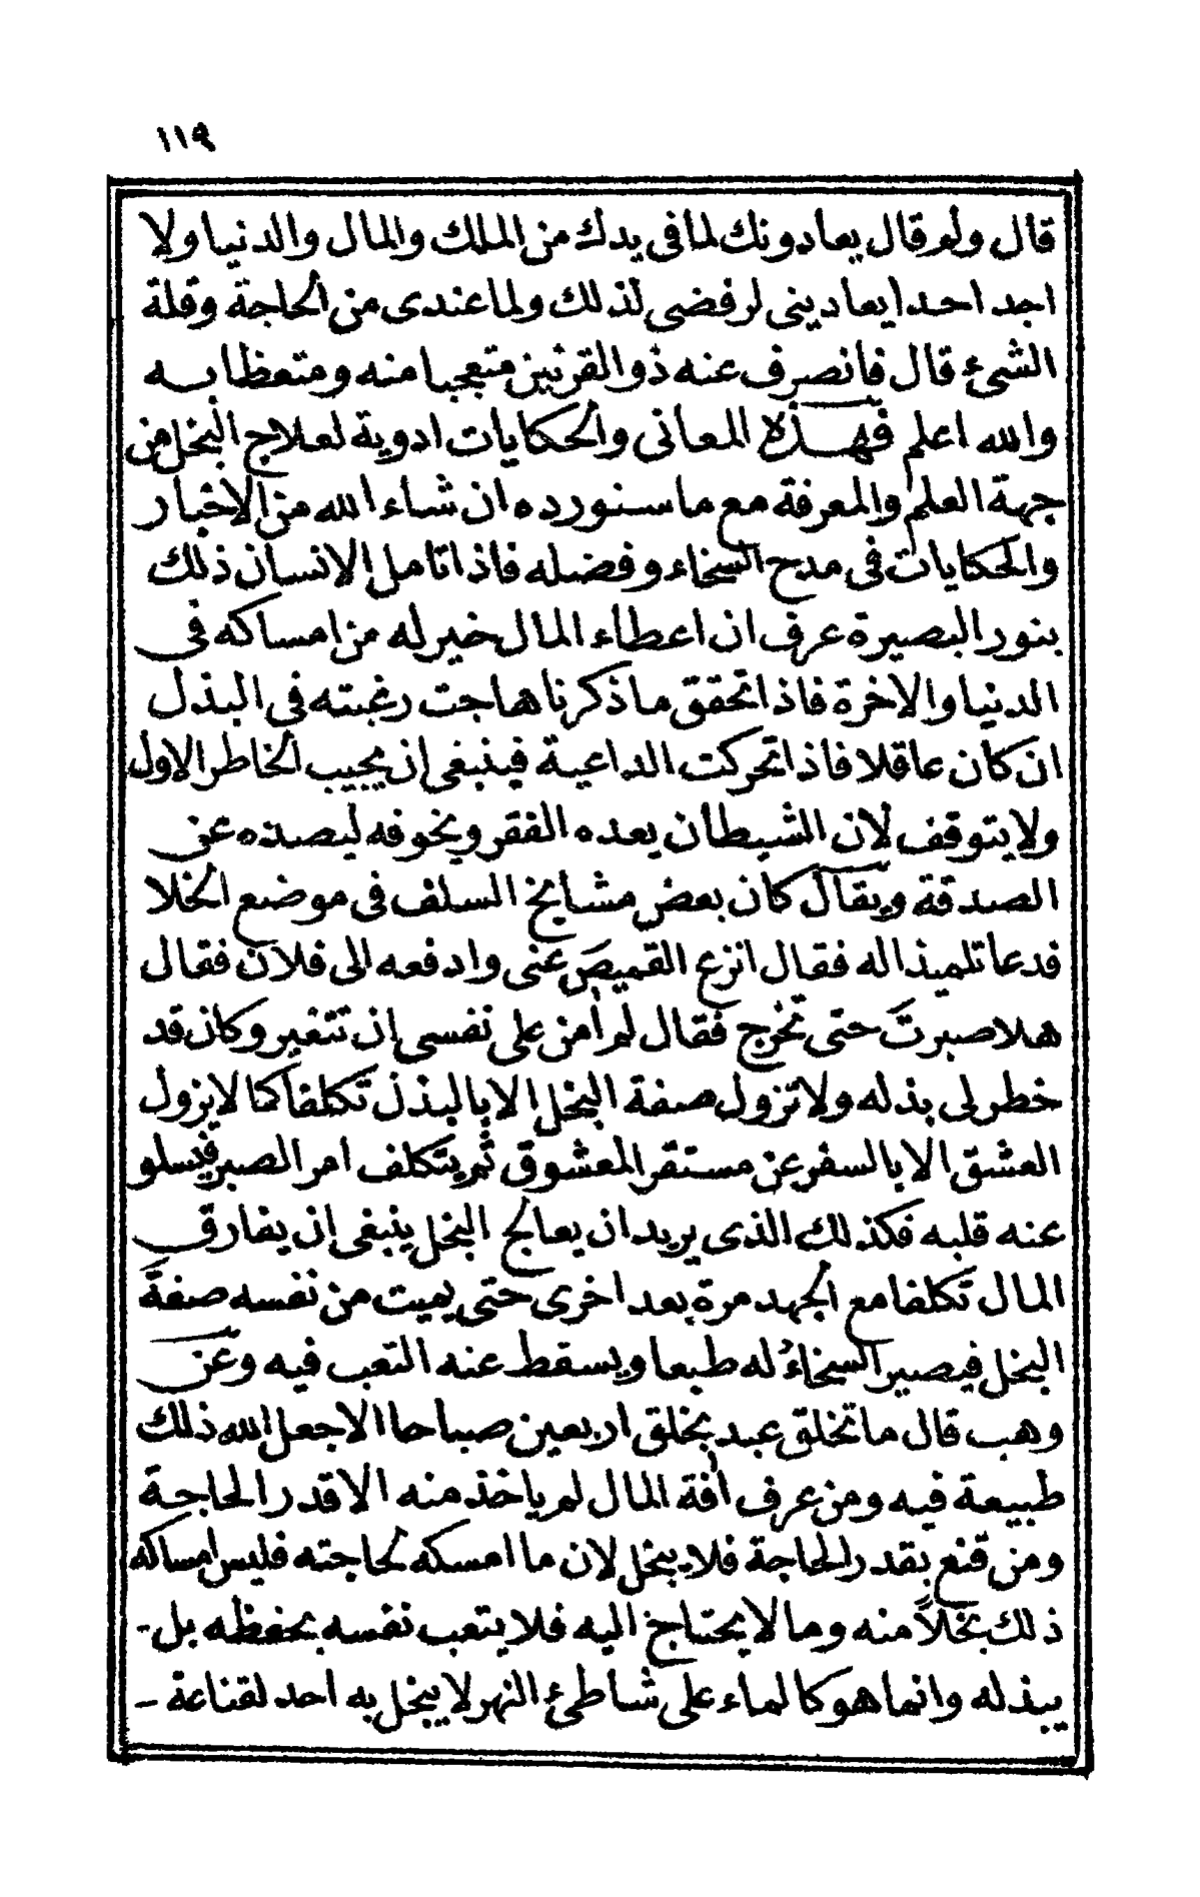 ١١٩
قال ولم قال يعادونك لما فى يدك من الملك والمال والدنيا ولا
اجد احدا يعادينى لرفضى لذلك ولما عندى من الحاجة وقلة
الشىء قال فانصرف عنه ذو القرنين متعجبا منه ومتعظا به
والله اعلم فهذه المعانى والحكايات ادوية لعلاج البخل من
جهة العلم والمعرفة مع ما سنورده ان شاء الله من الاخبار
والحكايات فى مدح السخاء وفضله فاذا تامل الانسان ذلك
بنور البصيرة عرف ان اعطاء المال خير له من امساكه فى
الدنيا والاخرة فاذا تحقق ما ذكرنا هاجت رغبته فى البذل
ان كان عاقلا فاذا تحركت الداعية فينبغى ان يجيب الخاطر الاول
ولا يتوقف لأن الشيطان يعده الفقر ويخوفه ليصده عن
الصدقة ويقال كان بعض مشايخ السلف فى موضع الخلا
فدعا تلميذا له فقال انزع القميصَ عنى وادفعه الى فلان فقال
هلا صبرتَ حتى تخرج فقال لم اٰمن على نفسى ان تتغير وكان قد
خطر لى بذله ولا تزول صفة البخل الا بالبذل تكلفا كما لا يزول
العشق الا بالسفر عن مستقر المعشوق ثم يتكلف امر الصبر فيسلو
عنه قلبه فكذلك الذى يريد ان يعالج البخل ينبغى ان يفارق
المال تكلفا مع الجهد مرة بعد اخرى حتى يميت من نفسه صفةَ
البخل فيصير السخاءُ له طبعا ويسقط عنه التعب فيه وعن
وهب قال ما تخلق عبد بخلق اربعين صباحا الا جعل الله ذلك
طبيعة فيه ومن عرف اٰفة المال لم ياخذ منه الا قدر الحاجة
ومن قنع بقدر الحاجة فلا يبخل لان ما امسكه لحاجته فليس امساكه
ذلك بخلاً منه وما لا يحتاج اليه فلا يتعب نفسه بحفظه بل-
يبذله وانما هو كالماء على شاطئ النهر لا يبخل به احد لقناعة -